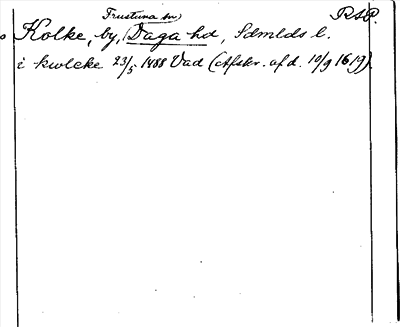 Frustuna sn RAP.
Kolke, by, Daga hd, Sdmlds l.
i kwlcke 23/5 1488 Vad (Afskr. af d. 10/9 1619).